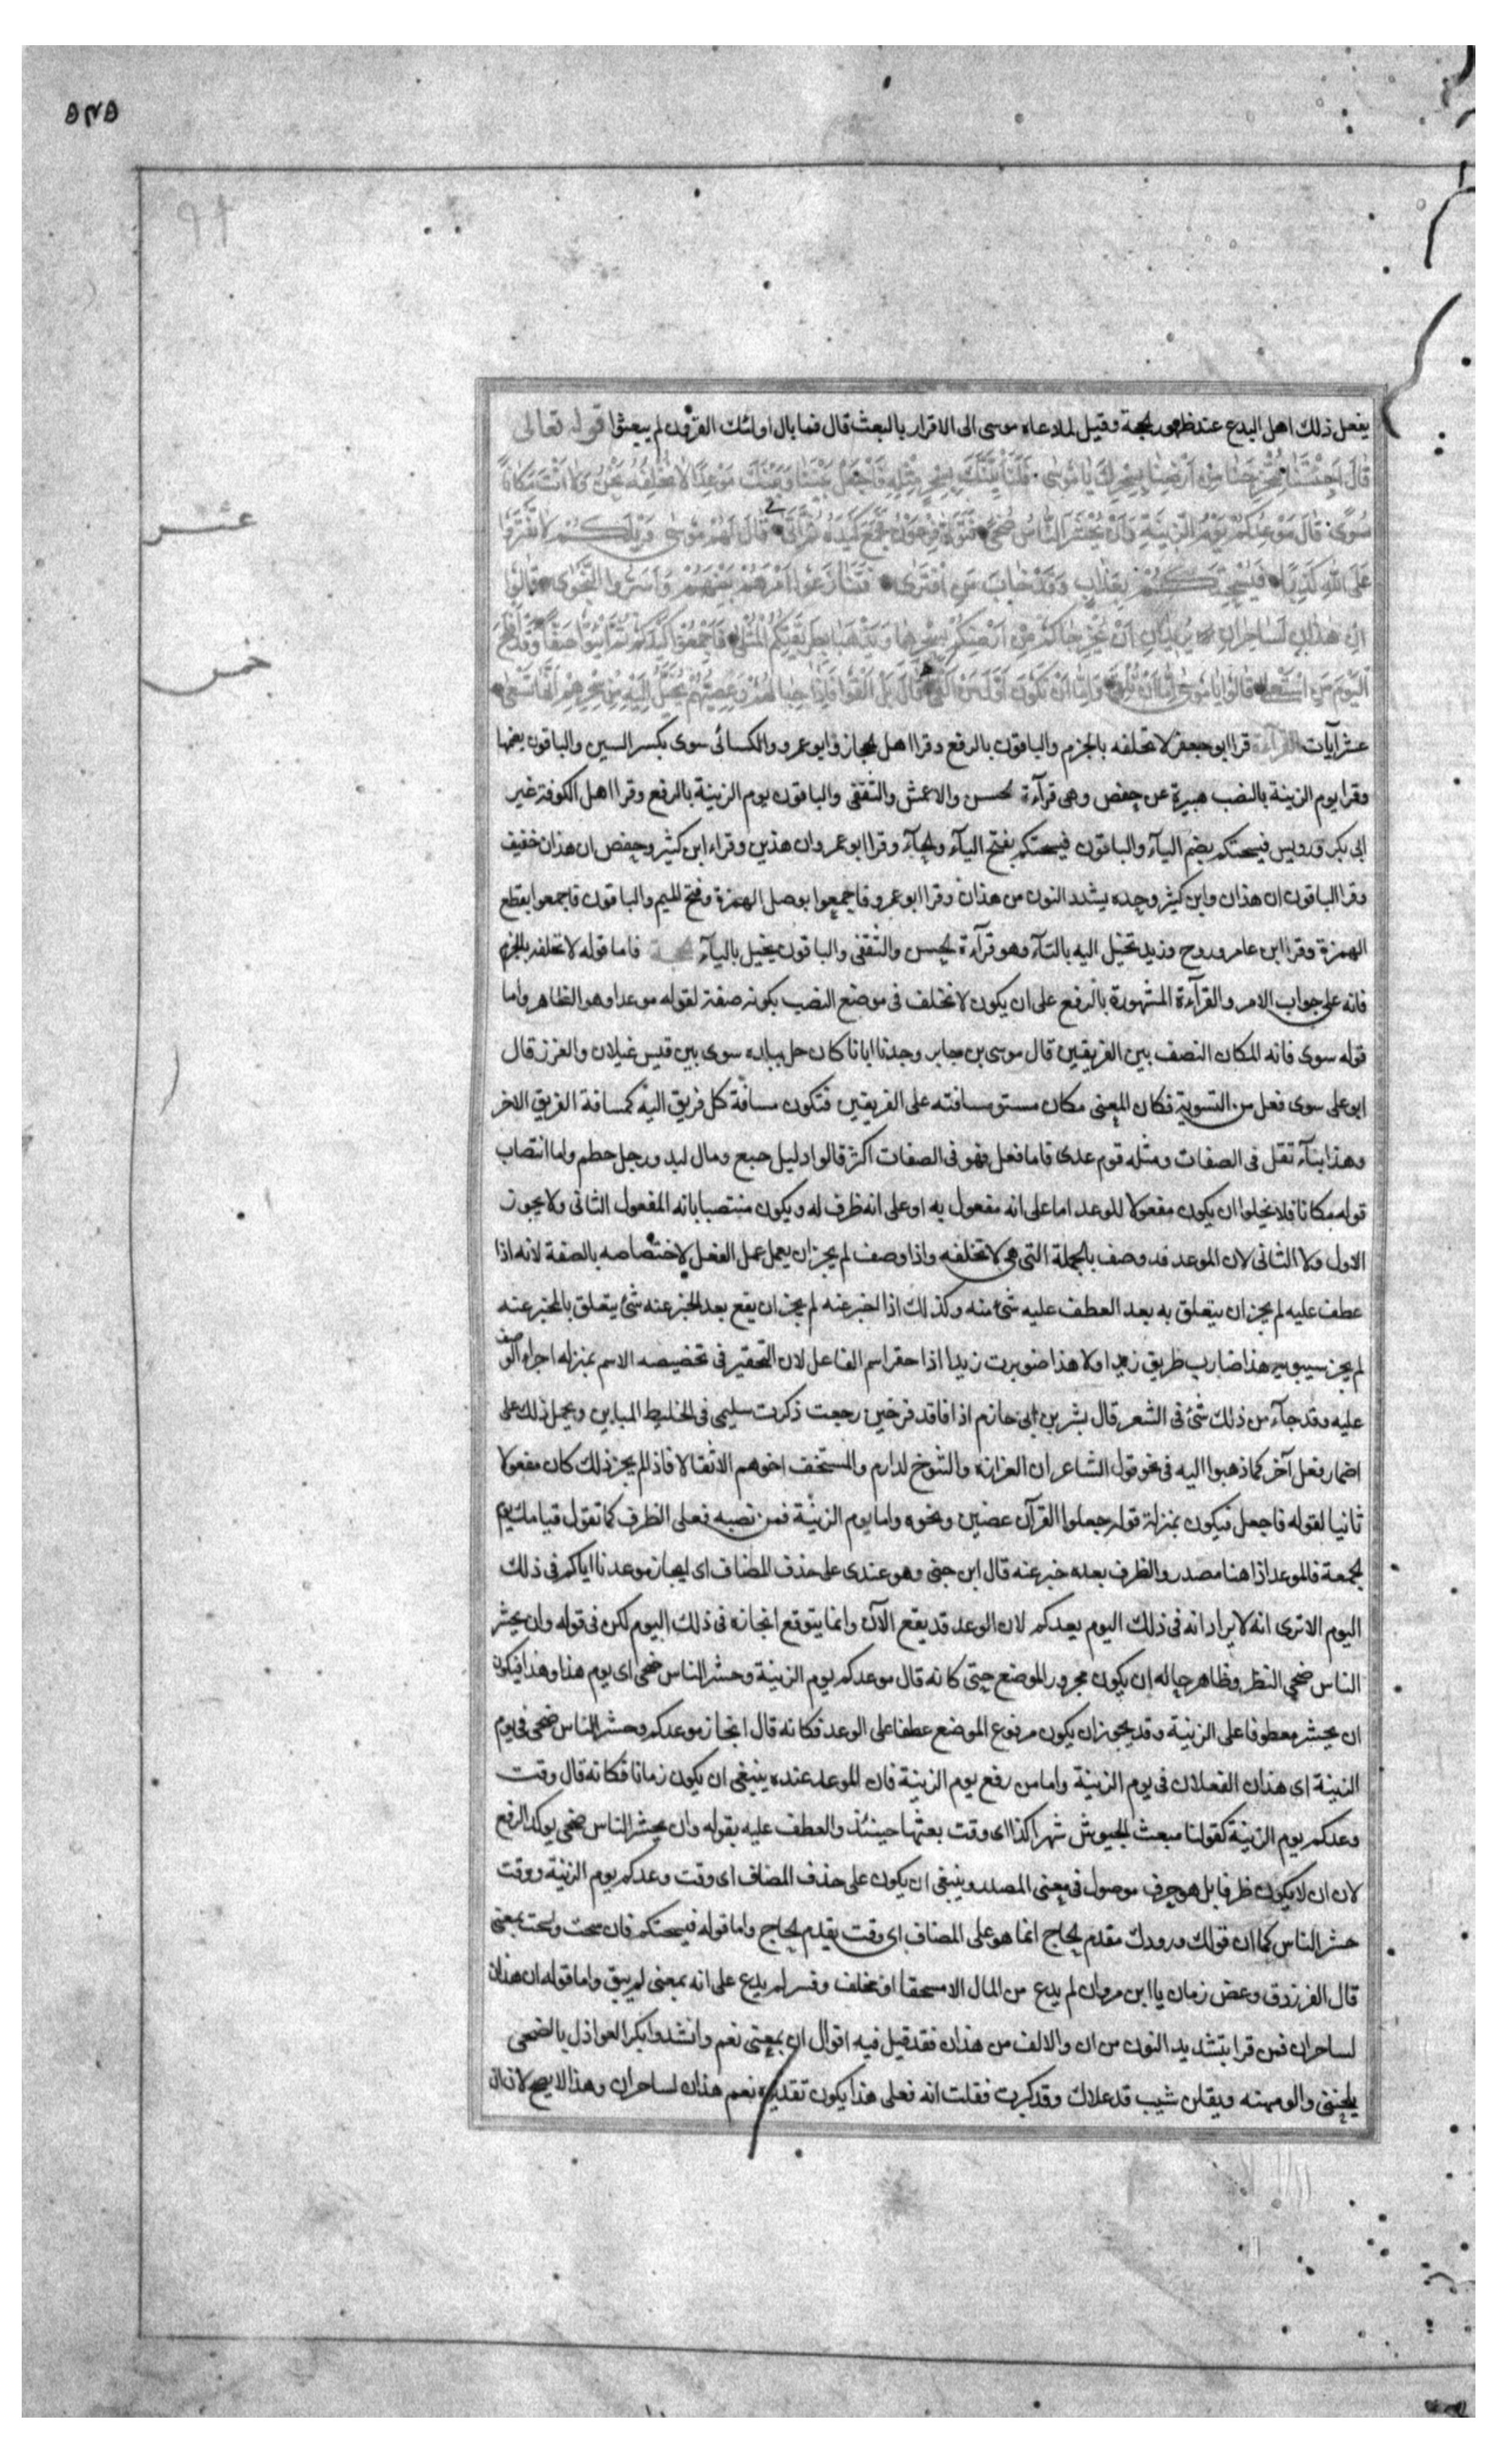 يفعل ذلك اهل البدع عند ظهور الحجة وقيل لما دعاه موسى الى الاقرار بالبعث قال فما بال اولئك القرون لم يبعثوا قوله تعالى
قَالَ اَجِئْتَنَا لِتُخْرِجَنَا مِنْ اَرْضِنَا بِسِحْرِكَ يَا مُوسَى فَلَنَأْتِيَنَّكَ بِسِحْرٍ مِثْلِهِ فَاجْعَلْ بَيْنَنَا وَبَيْنَكَ مَوْعِدًا لَا نُخْلِفُهُ نَحْنُ وَلَا اَنْتَ مَكَانًا
سُوًى قَالَ مَوْعِدُكُمْ يَوْمُ الزِّينَةِ وَاَنْ يُحْشَرَ النَّاسُ ضُحًى فَتَوَلَّى فِرْعَوْنُ فَجَمَعَ كَيْدَهُ ثُمَّ اَتَى قَالَ لَهُمْ مُوسَى وَيْلَكُمْ لَا تَفْتَرُوا
عَلَى اللّٰهِ كَذِبًا فَيُسْحِتَكُمْ بِعَذَابٍ وَقَدْ خَابَ مَنِ افْتَرَى فَتَنَازَعُوا اَمْرَهُمْ بَيْنَهُمْ وَاَسَرُّوا النَّجْوَى قَالُوا
اِنْ هٰذَانِ لَسَاحِرَانِ يُرِيدَانِ اَنْ يُخْرِجَاكُمْ مِنْ اَرْضِكُمْ بِسِحْرِهِمَا وَيَذْهَبَا بِطَرِيقَتِكُمُ الْمُثْلَى فَاَجْمِعُوا كَيْدَكُمْ ثُمَّ ائْتُوا صَفًّا وَقَدْ اَفْلَحَ
الْيَوْمَ مَنِ اسْتَعْلَى قَالُوا يَا مُوسَى اِمَّا اَنْ تُلْقِيَ وَاِمَّا اَنْ نَكُونَ اَوَّلَ مَنْ اَلْقَى قَالَ بَلْ اَلْقُوا فَاِذَا حِبَالُهُمْ وَعِصِيُّهُمْ يُخَيَّلُ اِلَيْهِ مِنْ سِحْرِهِمْ اَنَّهَا تَسْعَى
عشر
خمس
عشر آيات القرآءة قرا ابو جعفر لا نخلفه بالجزم والباقون بالرفع وقرا اهل الحجاز وابو عمرو والكسائى سوى بكسر السين والباقون بضمها
وقرا يوم الزينة بالنصب هبيرة عن حفص وهى قرآءة الحسن والاعمش والثقفى والباقون يوم الزينة بالرفع وقرا اهل الكوفة غير
ابى بكر ورويس فيسحتكم بضم اليآء والباقون فيسحتكم بفتح اليآء والحآء وقرا ابو عمرو ان هذين وقراء ابن كثير وحفص ان هذان خفيف
وقرا الباقون ان هذان وابن كثير وحده يشدد النون من هذان وقرا ابو عمرو فاجمعوا بوصل الهمزة وفتح الميم والباقون فاجمعوا بقطع
الهمزة وقرا ابن عامر وروح وزيد تخيل اليه بالتآء وهو قرآءة الحسن والثقفى والباقون يخيل باليآء الحجة فاما قوله لا نخلفه بالجزم
فانه على جواب الامر والقرآءة المشهورة بالرفع على ان يكون لا نخلف فى موضع النصب بكونه صفة لقوله موعدا وهو الظاهر واما
قوله سوى فانه المكان النصف بين الفريقين قال موسى بن جابر وجدنا ابانا كان حل ببلده سوى بين قيس غيلان والفزز قال
ابو على سوى فعل من التسوية فكان المعنى مكان مستو مسافته على الفريقين فتكون مسافة كل فريق اليه كمسافة الفريق الاخر
وهذا بنآء تقل فى الصفات ومثله قوم عدى فاما فعل فهو فى الصفات اكثر قالوا دليل ختع ومال لبد ورجل حطم واما انتصاب
قوله مكانا فلا يخلوا ان يكون مفعولا للموعد اما على انه مفعول به او على انه ظرف له ويكون منتصبا بانه المفعول الثانى ولا يجوز
الاول ولا الثانى لان الموعد قد وصف بالجملة التى هى لا نخلفه واذا وصف لم يجز ان يعمل عمل الفعل لاختصاصه بالصفة لانه اذا
عطف عليه لم يجز ان يتعلق به بعد العطف عليه شئ منه وكذلك اذا اخبر عنه لم يجز ان يقع بعد الخبر عنه شئ يتعلق بالمخبر عنه
لم يجز سيبويه هذا ضارب ظريف زيدا ولا هذا ضويرب زيدا اذا حقر اسم الفاعل لان التحقير فى تخصيصه الاسم بمنزله اجراء الوصف
عليه وقد جآء من ذلك شئ فى الشعر قال بشر بن ابى حازم اذا فاقد فرخين رجعت ذكرت سليمى فى الخليط المباين ويحمل ذلك على
اضمار فعل آخر كما ذهبوا اليه فى نحو قول الشاعر ان العرارة والنبوخ لدارم والمستخف اخوهم الاثقالا فاذا لم يجز ذلك كان مفعولا
ثانيا لقوله فاجعل فيكون بمنزلة قوله جعلوا القرآن عضين ونحوه واما يوم الزينة فمن نصبه فعلى الظرف كما تقول قيامك يوم
الجمعة فالموعد اذا هنا مصدر والظرف بعده خبر عنه قال ابن جنى وهو عندى على حذف المضاف اى انجاز موعدنا اياكم فى ذلك
اليوم الا ترى انه لا يراد انه فى ذلك اليوم يعدكم لان الوعد قد يقع الآن وانما يتوقع انجازه فى ذلك اليوم لكن فى قوله وان يحشر
الناس ضحى النظر وظاهر حاله ان يكون مجرور الموضع حتى كانه قال موعدكم يوم الزينة وحشر الناس ضحى اى يوم هذا وهذا فيكون
ان يحشر معطوفا على الزينة وقد يجوز ان يكون مرفوع الموضع عطفا على الوعد فكانه قال انجاز موعدكم وحشر الناس ضحى فى يوم
الزينة اى هذان الفعلان فى يوم الزينة واما من رفع يوم الزينة فان الموعد عنده ينبغى ان يكون زمانا فكانه قال وقت
وعدكم يوم الزينة كقولنا مبعث الجيوش شهر كذا اى وقت بعثها حينئذ والعطف عليه بقوله وان يحشر الناس ضحى يوكد الرفع
لان ان لا يكون ظرفا بل هو حرف موصول فى معنى المصدر وينبغى ان يكون على حذف المضاف اى وقت وعدكم يوم الزينة ووقت
حشر الناس كما ان قولك ورودك مقدم الحاج انما هو على المضاف اى وقت يقدم الحاج واما قوله فيسحتكم فان سحت واسحت بمعنى
قال الفرزدق وعض زمان يا ابن مروان لم يدع من المال الا مسحقا او مخلف وفسر لم يدع على انه بمعنى لم يبق واما قوله ان هذان
لساحران فمن قرا بتشديد النون من ان والالف من هذان فقد قيل فيه اقوال ان بمعنى نعم وانشدوا بكر العواذل بالضحى
يلحيننى والومهنه ويقلن شيب قد علاك وقد كبرت فقلت انه فعلى هذا يكون تقديره نعم هذان لساحران وهذا لا يصح لان ان